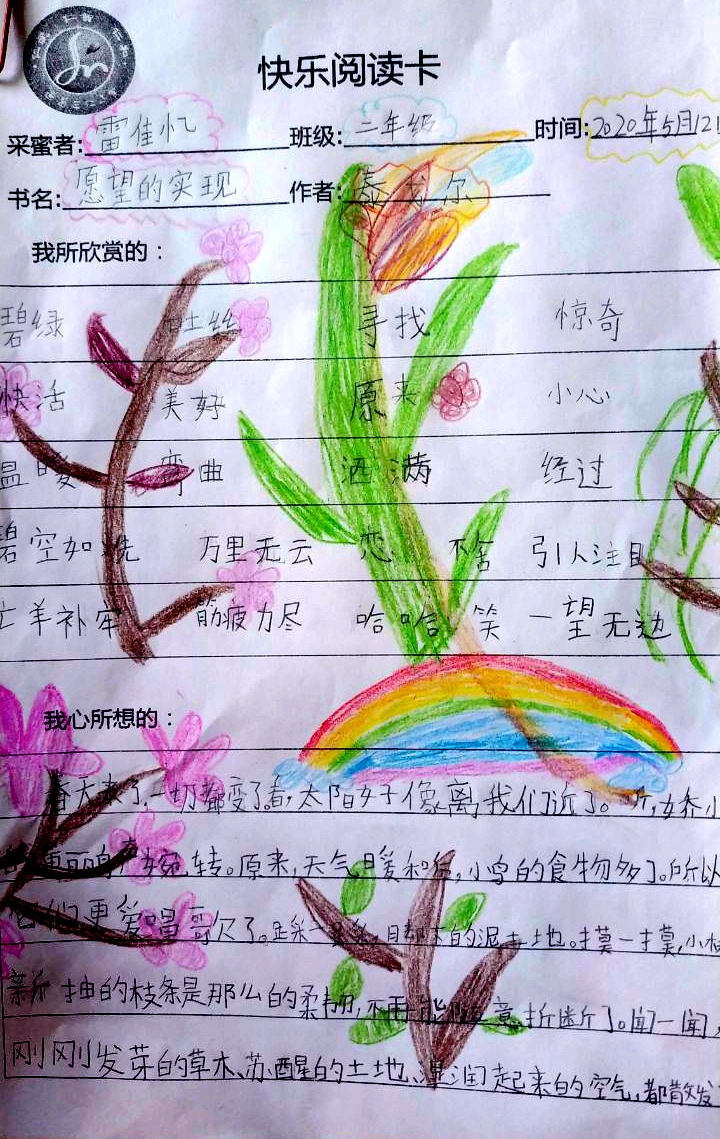 快乐阅读卡
采蜜者: 雷佳忆 班级: 二年级 时间: 2020年5月12
书名: 愿望的实现 作者: 泰戈尔
我所欣赏的：
碧绿 吐丝 寻找 惊奇
快活 美好 原来 小心
温暖 弯曲 洒满 经过
碧空如洗 万里无云 恋 不舍 引人注目
亡羊补牢 筋疲力尽 哈哈笑 一望无边
我心所想的：
春天来了,一切都变了。看,太阳好像离我们近了。听,
更 婉转。原来,天气暖和了,小鸟的食物多了。所以
它们更爱唱歌了。踩一踩, 的泥土地。摸一摸,小
新抽的枝条是那么的柔韧,不再能 意折断了。闻一闻
刚刚发芽的草木、苏醒的土地、湿润起来的空气,都散发